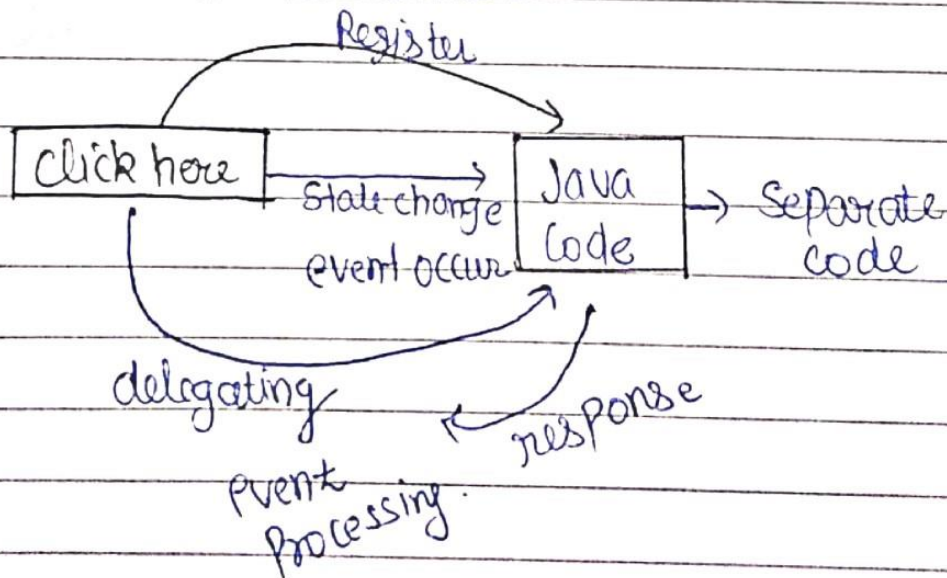 Register
Click here
State change
event occur
Java
Code
Separate
code
delegating
response
event
Processing.